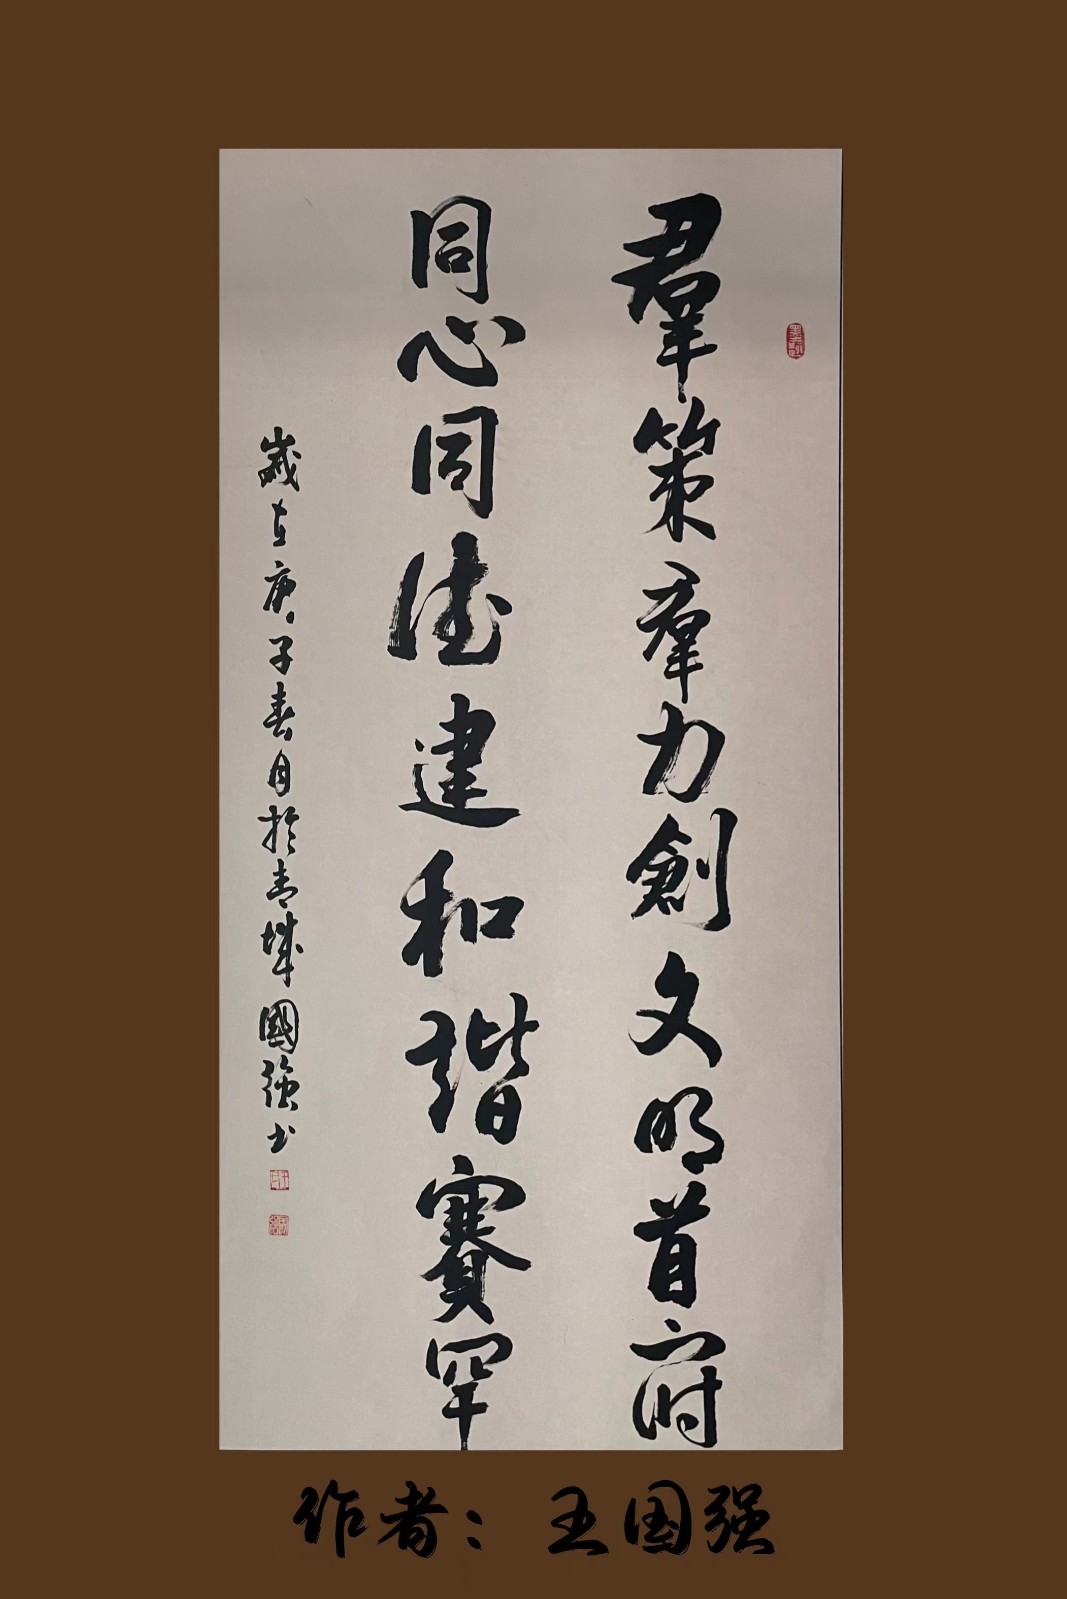 羣策羣力創文明首府
同心同德建和諧賽罕
歲在庚子春月於青城國强书
作者：王国强